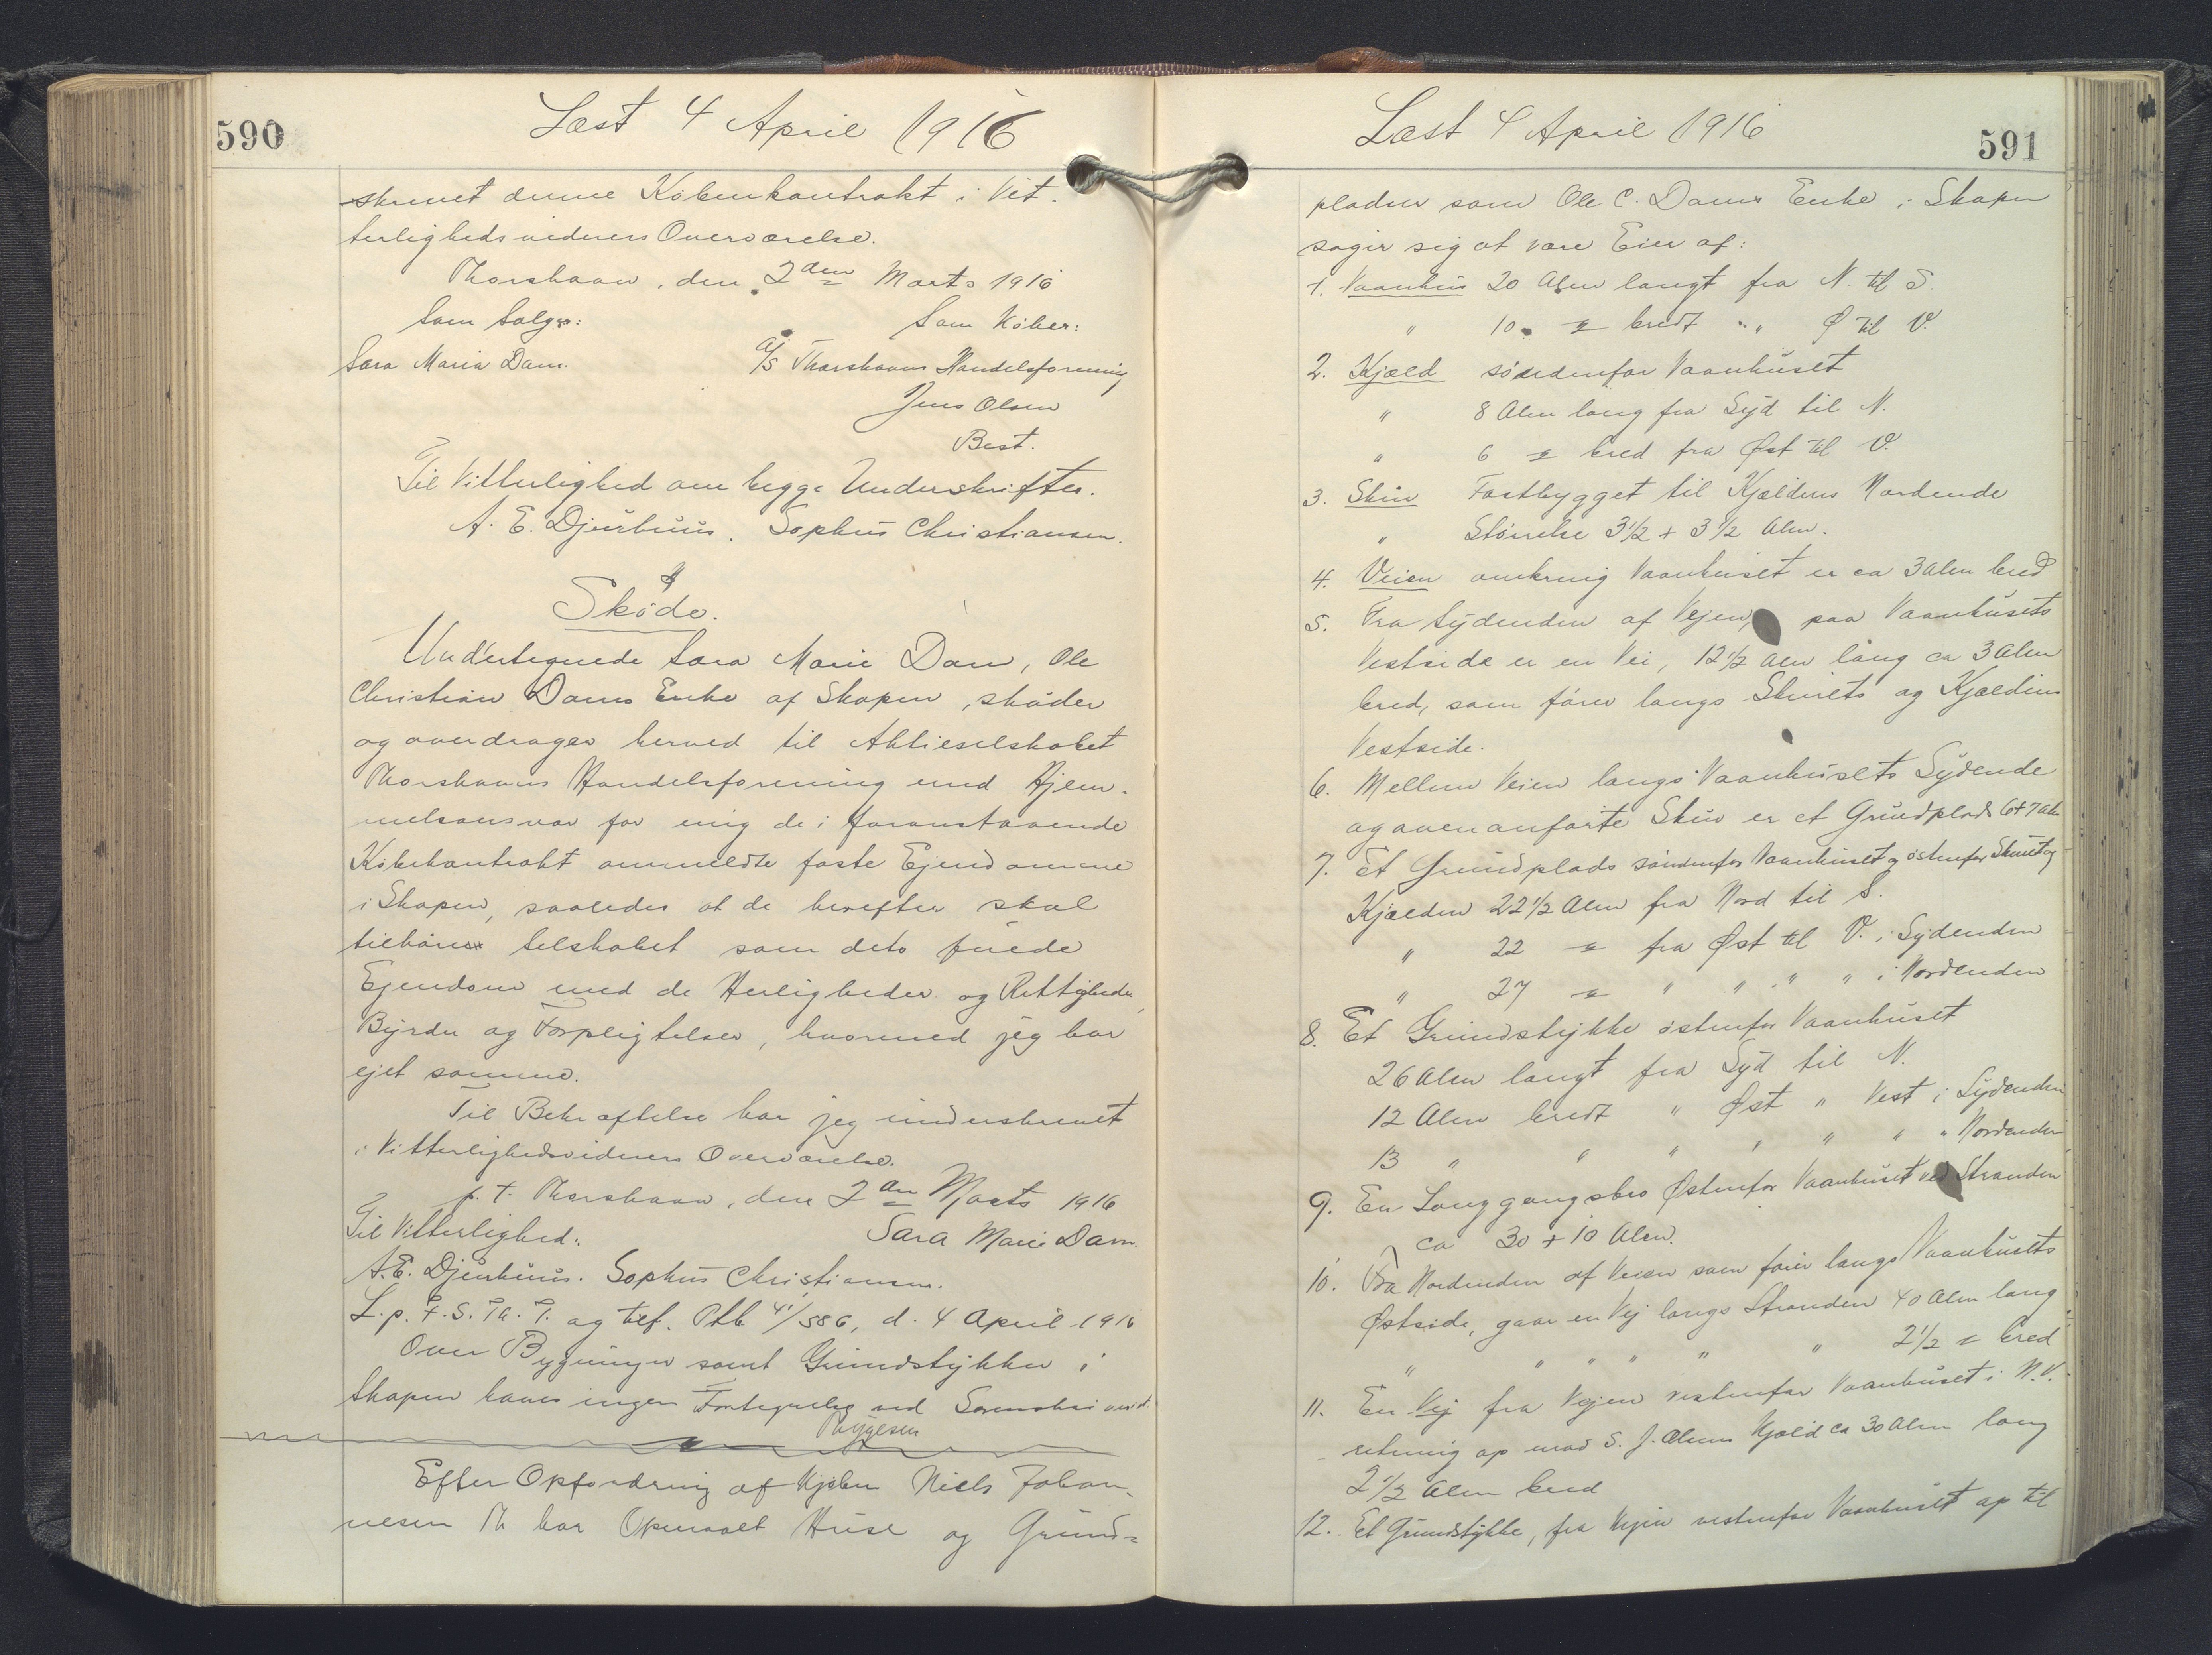 590
Læst 4 April 1916
skrevet denne Købenkontrakt i Vit-
terlighedsvidners Overværelse.
Thorshavn, den 2den Marts 1916
Som Sælger: Som Køber:
Sara Maria Dam. A/S Thorshavns Handelsforening
Jens Olsen
Best.
Til Vitterlighed om begge Underskrifter.
A. E. Djurhuus. Sophus Christiansen.
Skøde.
Undertegnede Sara Marie Dam, Ole
Christian Dams Enke af Skopen, skøder
og overdrager herved til Aktieselskabet
Thorshavns Handelsforening med Hjem-
melsansvar for mig de i foranstaaende
Købekontrakt ommeldte faste Ejendomme
i Skopen, saaledes at de herefter skal
tilhøre Selskabet som dets fuede
Ejendom med de Herligheder og Rettigheder,
Byrder og Forpligtelser, hvormed jeg har
ejet samme.
Til Bekræftelse har jeg underskrevet
i Vitterlighedsvidners Overværelse.
p. t. Thorshavn, den 2den Marts 1916
Til Vitterlighed: Sara Marie Dam.
A.E. Djurhuus. Sophus Christiansen.
L. p. F. S. Th. T. og tilf. Ptb 41/586, d. 4 April 1916
Over Bygninger samt Grundstykker i
Skopen haves ingen Fortegnelse ved
Rygesen
Efter Opfordring af Kjøber Niels Johan-
nesen Th har Opmaalt Huse og Grund=
Læst 4 April 1916
591
pladser som Ole C. Dams Enke i Skopen
søger sig at være Eier af:
1. Vaanhus 20 Alen langt fra N. til S.
" 10 " bredt " " Ø til V.
2. Kjæld søndenfor Vaanhuset
" 8 Alen lang fra Syd til N.
" 6 " bred fra Øst til V.
3. Skur Fastbygget til Kjældens Nordende
" Størrelse 3½ + 3½ Alen.
4. Veien omkring Vaanhuset er ca 3 Alen bred
5. Fra Sydenden af Vejen, paa Vaanhusets
Vestside er en Vei, 12½ Alen lang ca 3 Alen
bred, som fører langs Skurets og Kjældens
Vestside.
6. Mellem Veien langs Vaanhusets Sydende
og ovenanførte Skur er et Grundplads 6+7 Alen
7. Et Grundplads søndenfor Vaanhuset og østenfor Skuret og
Kjælden 22½ Alen fra Nord til S.
" 22 " fra Øst til V. i Sydenden
" 27 " " " " " i Nordenden
8. Et Grundstykke østenfor Vaanhuset
26 Alen langt fra Syd til N.
12 Alen bredt " Øst " Vest i Sydenden
13 " " " " " " " Nordenden
9. En Langgangsbro Østenfor Vaanhuset ved Stranden
ca 30 + 10 Alen.
10. Fra Nordenden af Veien som fører langs Vaanhusets
Østside, gaar en Vej langs Stranden 40 Alen lang
" " " " " " 2½ " bred
11. En Vej fra Vejen vestenfor Vaanhuset i N.V.
retning op mod S. J. Olsens Kjæld ca 30 Alen lang
2½ Alen bred
12. Et Grundstykke, fra Vejen vestenfor Vaanhuset op til